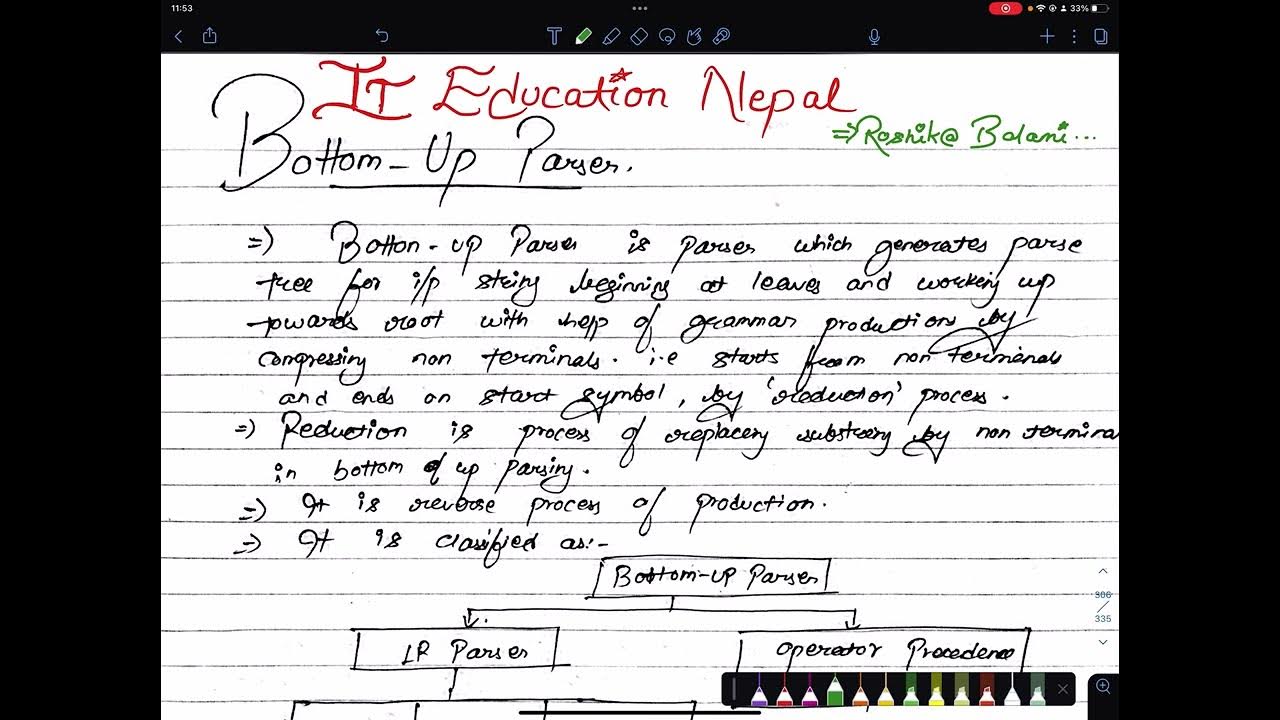 11:53
33%
IT Education Nepal
⇒ Roshik@ Balami...
Bottom-Up Parser.
⇒) Botton-up Parser is parser which generates parse
tree for i/p string beginning at leaves and working up
towards root with help of grammar productions by
compressing non terminals. i.e starts from non terminals
and ends on start symbol, by 'reduction' process.
⇒) Reduction is process of replacing substring by non termina
in bottom up parsing.
⇒) It is reverse process of production.
⇒) It is classified as:-
Bottom-up Parser
LR Parser
Operator Procedence
306
335